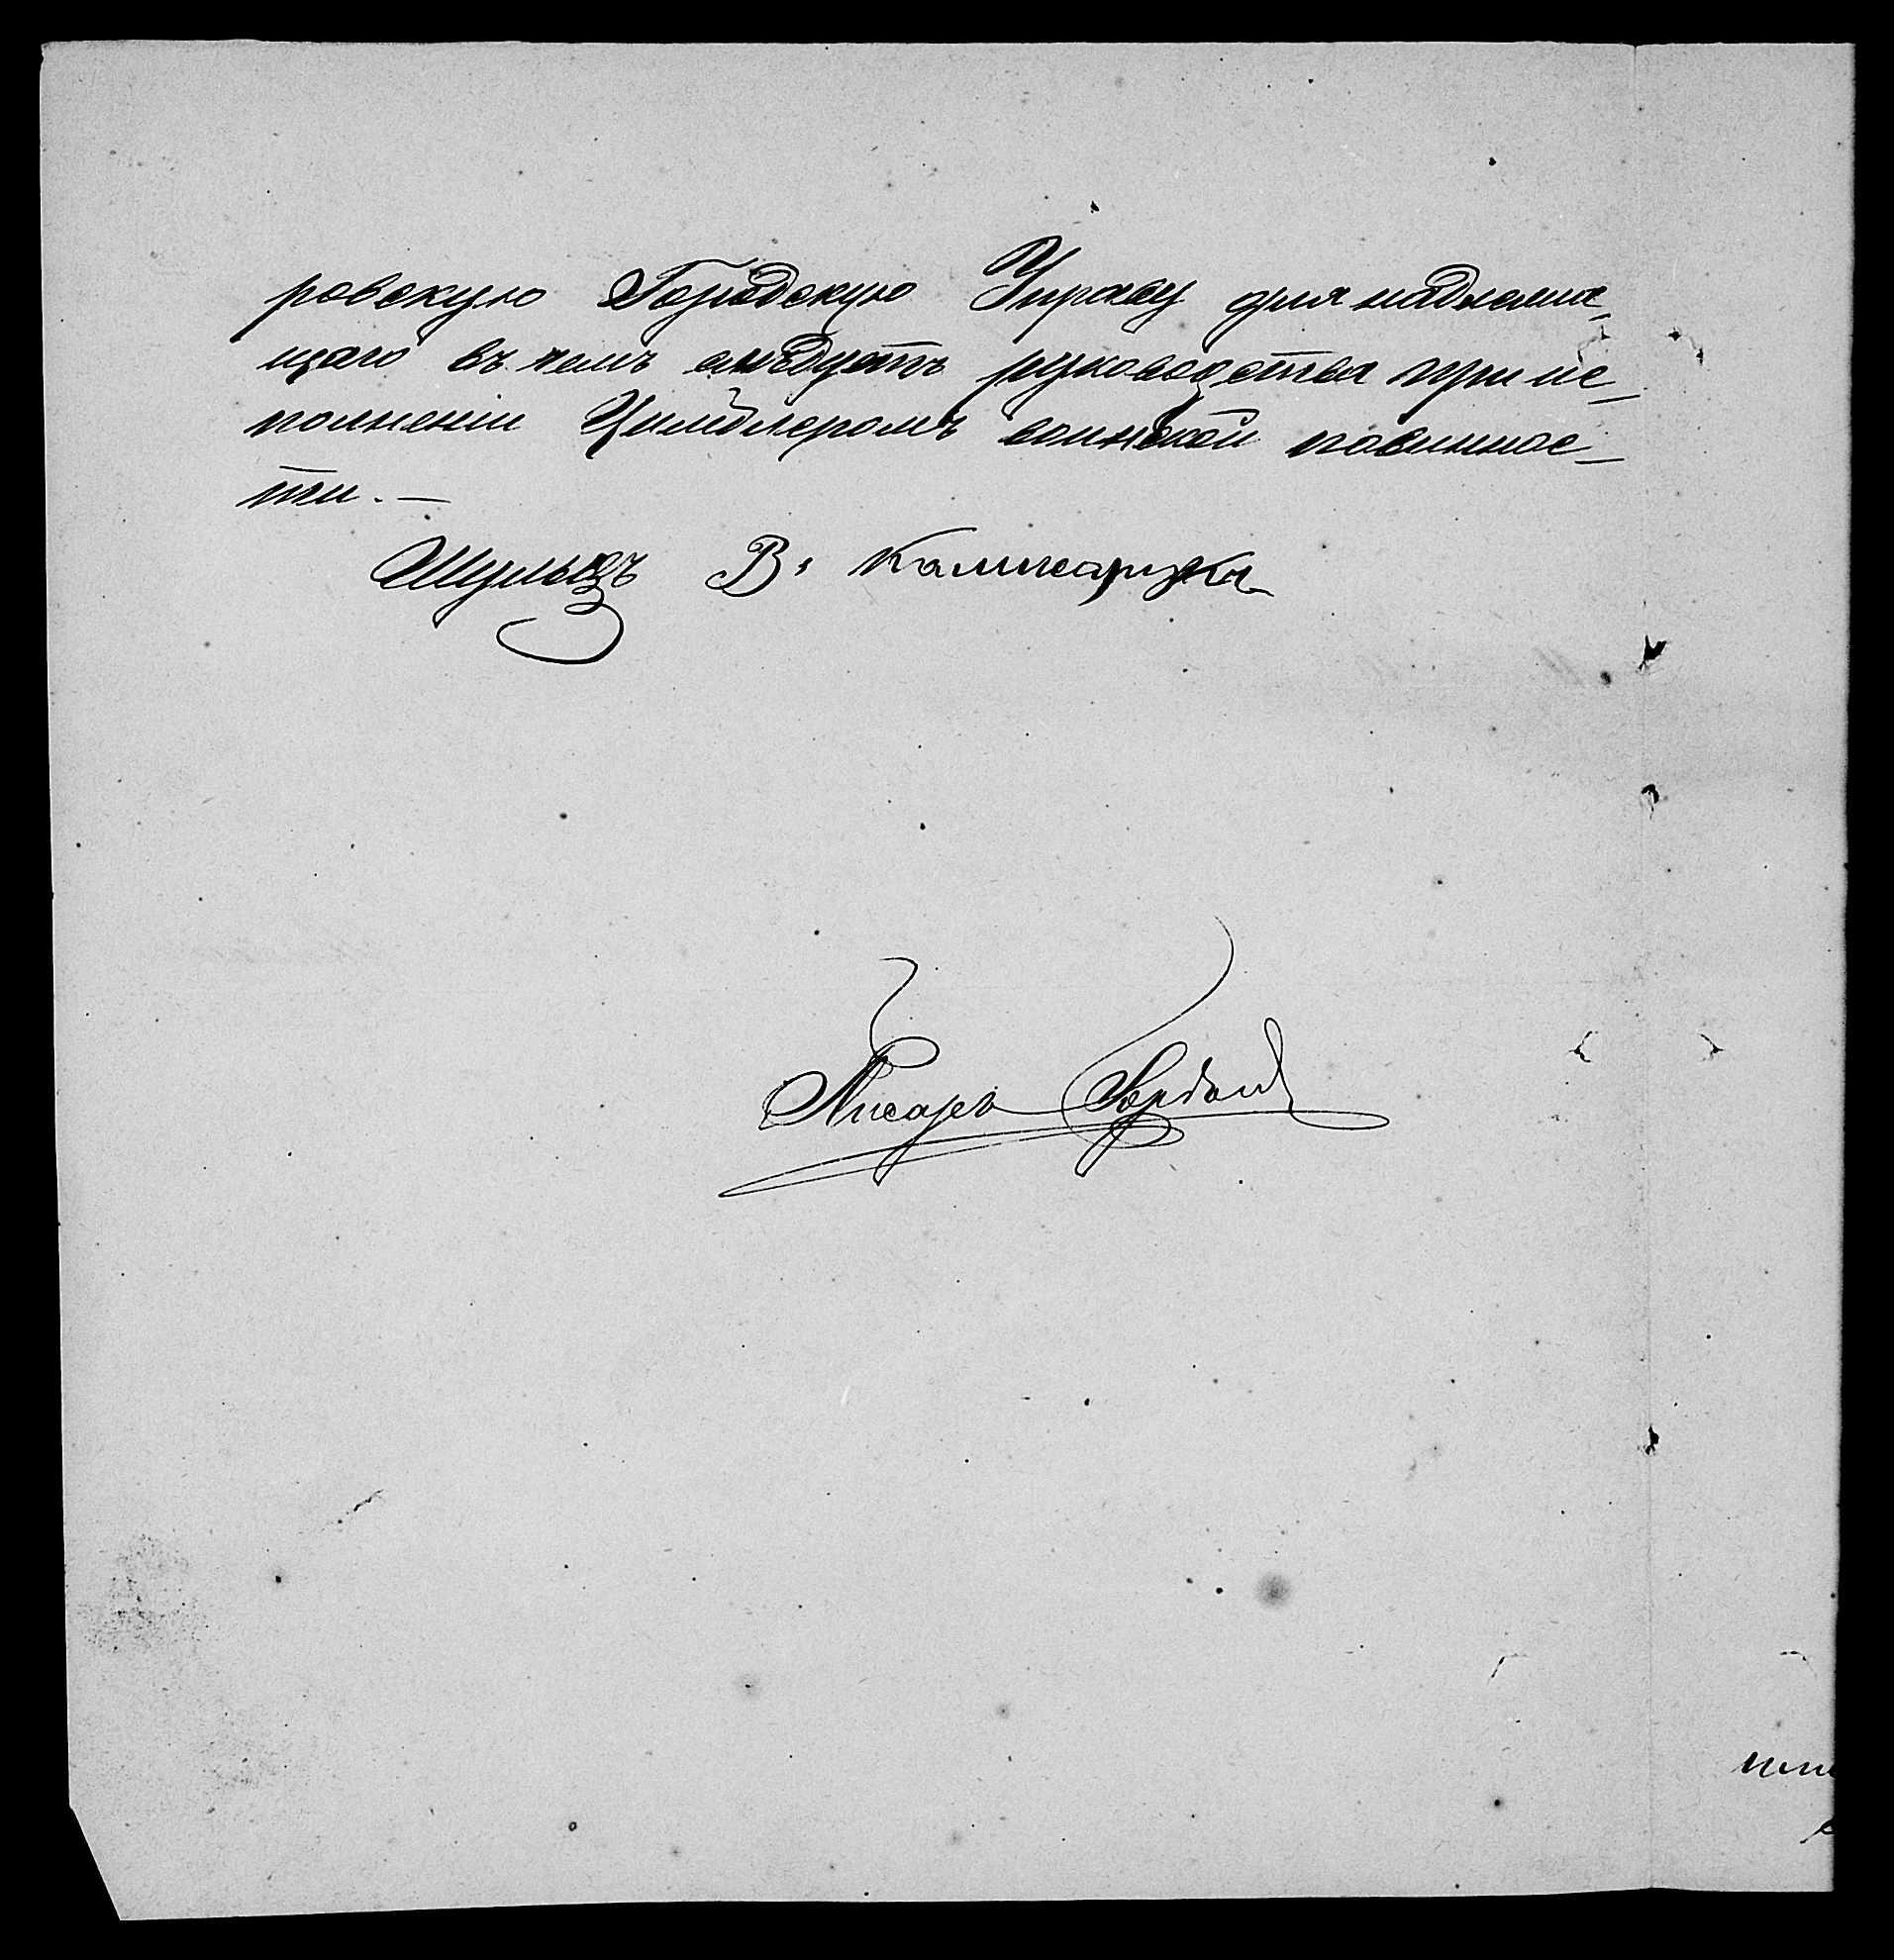 ровскую Городскую Управу для надлежа-
щаго въ чемъ слѣдуетъ руководства при ис-
полненіи Циммлеромъ воинской повиннос-
ти. —
Шульцъ В.
Писарь